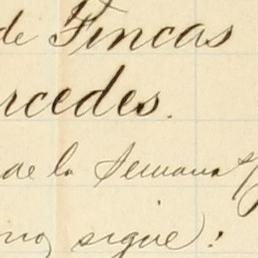 de Fincas
rcedes.
de la Semana
sigue: